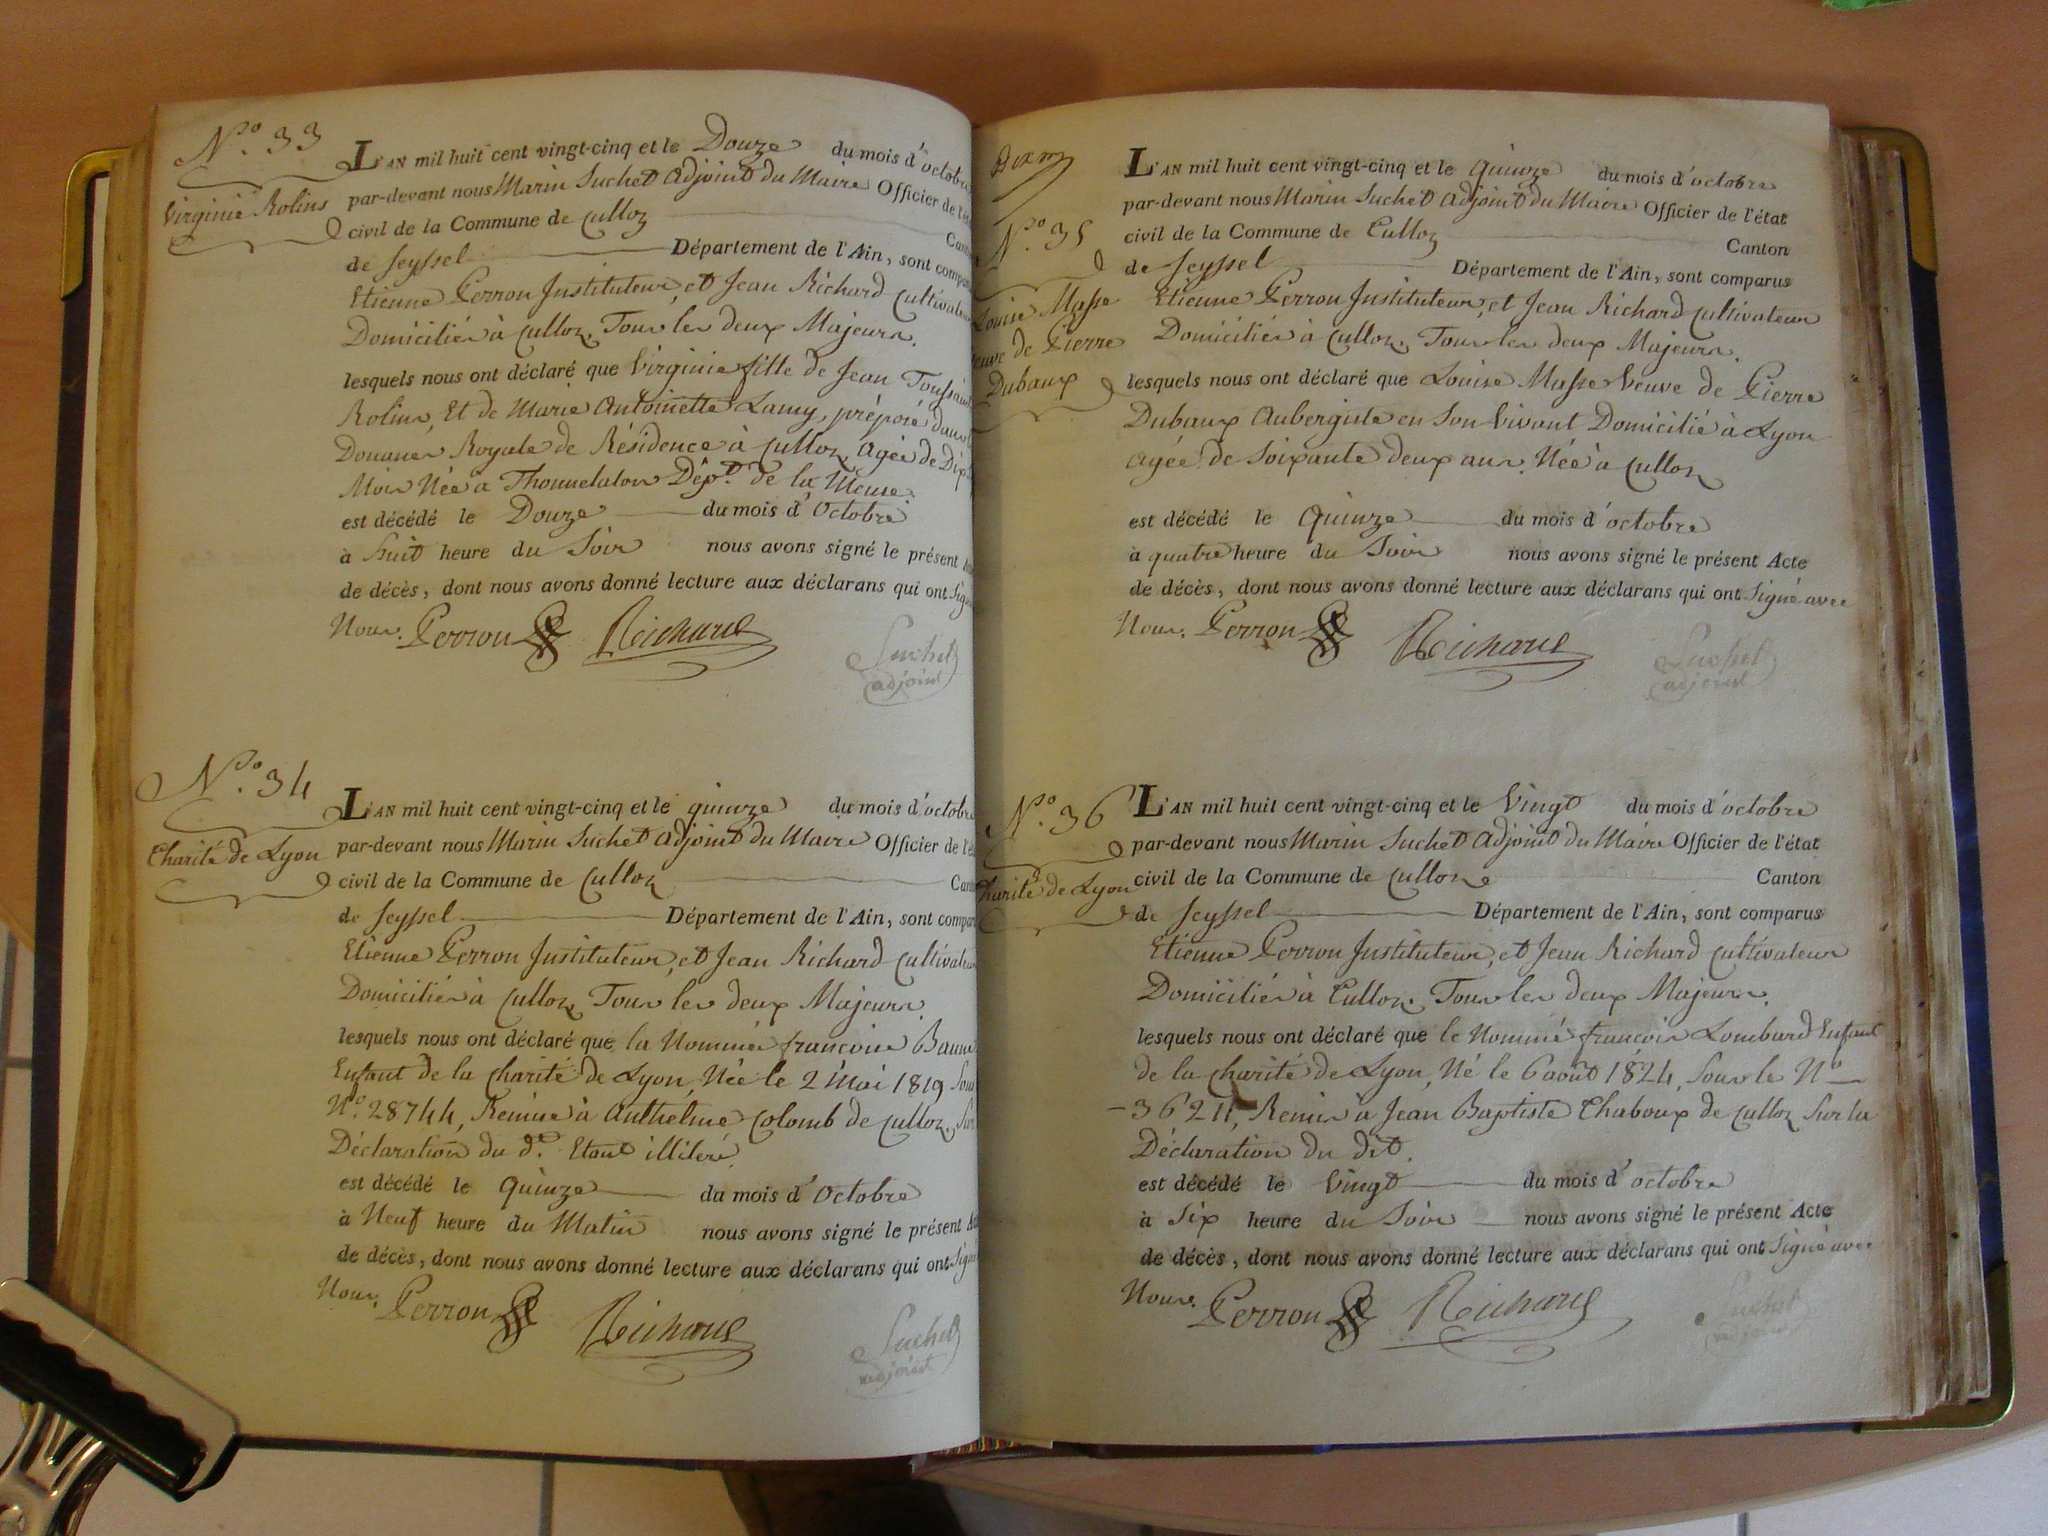 N.o 33
Virginie Rolins
L'AN mil huit cent vingt-cinq et le Douze du mois d'octobre
par-devant nous Marin Suchet Adjoint du Maire Officier de l'ét
civil de la Commune de Culloz Can
de Seyssel Département de l'Ain, sont compar
Etienne Perron Instituteur, et Jean Richard Cultivateur
Domiciliés à Culloz, Tous les deux Majeurs.
lesquels nous ont déclaré que Virginie fille de Jean Toussain
Rolins, Et de Marie Antoinette Lamy, préposé dans
Douanes Royale de Résidence à Culloz, Agée de Dix
Mois Née a Thonnelalon Dépt. de la Meuse.
est décédé le Douze du mois d'Octobre
à huit heure du Soir nous avons signé le présent A
de décès, dont nous avons donné lecture aux déclarans qui ont Sign
Nous. Perron Richard
Suchet
adjoint
N.o 34
Charité de Lyon
L'AN mil huit cent vingt-cinq et le quinze du mois d'octobre
par-devant nous Marin Suchet Adjoint du Maire Officier de l'é
civil de la Commune de Culloz Can
de Seyssel Département de l'Ain, sont compar
Etienne Perron Instituteur, et Jean Richard Cultivateur
Domiciliés à Culloz, Tous les deux Majeurs.
lesquels nous ont déclaré que la Nommée françoise Banne
Enfant de la Charité de Lyon, Née le 2 Mai 1819 Sous
N.o 28744, Remise à Anthelme Colomb de Culloz, Sur
Déclaration du d.t Etant illitéré.
est décédé le Quinze du mois d'Octobre
à Neuf heure du Matin nous avons signé le présent A
de décès, dont nous avons donné lecture aux déclarans qui ont Sign
Nous. Perron Richard
Suchet
adjoint
N.o 35
Louise Masse
veuve de Pierre
Dubaux
L'AN mil huit cent vingt-cinq et le Quinze du mois d'octobre
par-devant nous Marin Suchet Adjoint du Maire Officier de l'état
civil de la Commune de Culloz Canton
de Seyssel Département de l'Ain, sont comparus
Etienne Perron Instituteur, et Jean Richard Cultivateur
Domiciliés à Culloz, Tous les deux Majeurs.
lesquels nous ont déclaré que Louise Masse Veuve de Pierre
Dubaux Aubergiste en Son Vivant Domicilié à Lyon
Agée de Soixante deux ans, Née à Culloz
est décédé le Quinze du mois d'octobre
à quatre heure du Soir nous avons signé le présent Acte
de décès, dont nous avons donné lecture aux déclarans qui ont Signé avec
Nous. Perron Richard
Suchet
adjoint
N.o 36
Charité de Lyon
L'AN mil huit cent vingt-cinq et le Vingt du mois d'octobre
par-devant nous Marin Suchet Adjoint du Maire Officier de l'état
civil de la Commune de Culloz Canton
de Seyssel Département de l'Ain, sont comparus
Etienne Perron Instituteur, et Jean Richard Cultivateur
Domiciliés à Culloz, Tous les deux Majeurs.
lesquels nous ont déclaré que le Nommé françois Lombard Enfant
de la Charité de Lyon, Né le 6 août 1824, Sous le N.o
Remis à Jean Baptiste Chaboux de Culloz Sur la
Déclaration du dit.
est décédé le Vingt du mois d'octobre
à Six heure du Soir nous avons signé le présent Acte
de décès, dont nous avons donné lecture aux déclarans qui ont Signé avec
Nous. Perron Richard
Suchet
adjoint